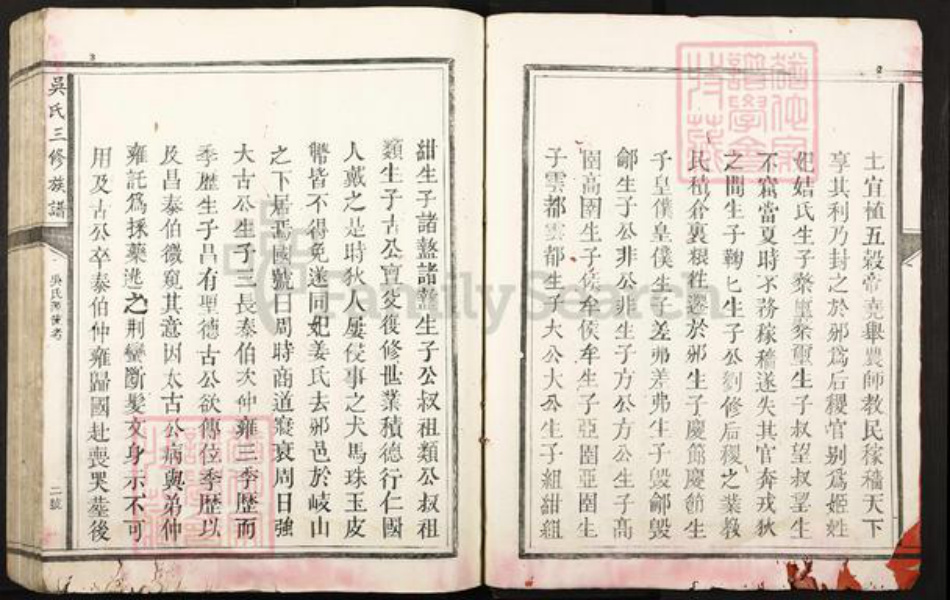 土宜植五穀帝堯舉農師教民稼穡天下
享其利乃封之於邠爲后稷官别爲姬姓
妃姞氏生子漦壐漦壐生子叔望叔望生
不窋當夏時不務稼穡遂失其官奔戎狄
之間生子鞠匕生子公劉修后稷之業教
民積倉裹粮徃遷於邠生子慶節慶節生
子皇僕皇僕生子差弗差弗生子毀鄃毀
鄃生子公非公非生子方公方公生子高
圉高圉生子侯牟侯牟生子亞圉亞圉生
子雲都雲都生子大公大公生子組紺組
紺生子諸盩諸盩生子公叔祖類公叔祖
類生子古公亶父復修世業積德行仁國
人戴之是時狄人屢侵事之犬馬珠玉皮
幣皆不得免遂同妃姜氏去邠邑於岐山
之下居焉國號曰周時商道寖衰周日強
大古公生子三長泰伯次仲雍三季歷而
季歷生子昌有聖德古公欲傳位季歷以
及昌泰伯微窺其意因太古公病與弟仲
雍託爲採藥逃之荆蠻斷髮文身示不可
用及古公卒泰伯仲雍歸國赴喪哭塟後
吳氏三修族譜
吳氏考
二號
FamilySearch